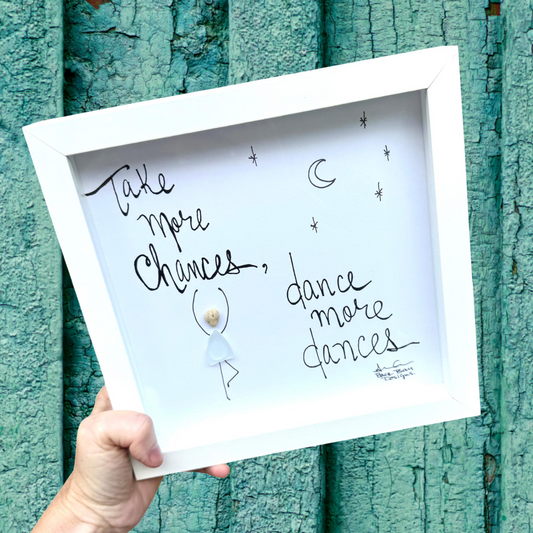 Take
more
Chances,
dance
more
dances
Designs